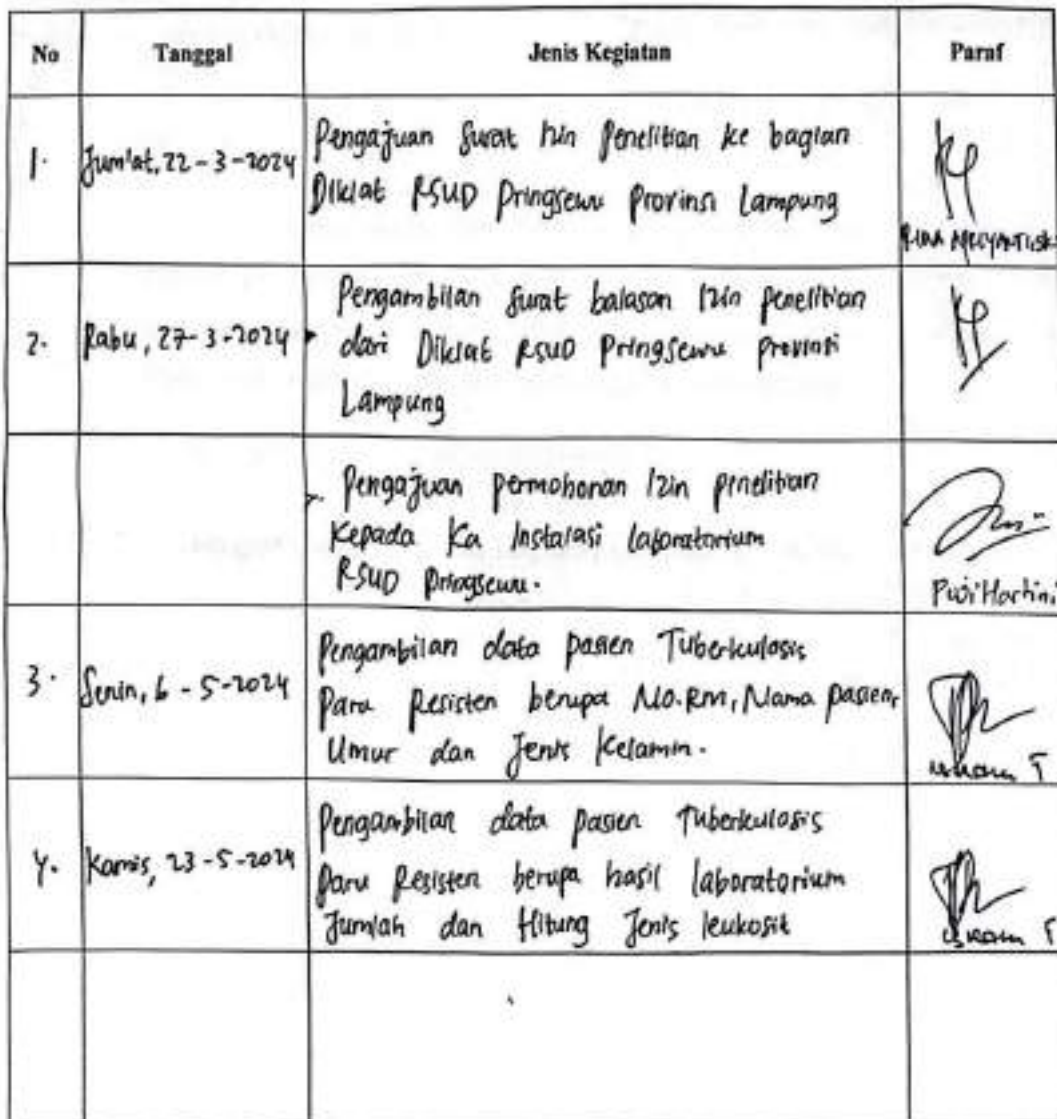 No Tanggal Jenis Kegiatan Paraf
1. Jum'at, 22-3-2024 Pengajuan Surat Izin Penelitian ke bagian
Diklat RSUD Pringsewu Provinsi Lampung
2. Rabu, 27-3-2024 Pengambilan Surat balasan Izin penelitian
dari Diklat RSUD Pringsewu Provinsi
Lampung
Pengajuan permohonan Izin penelitian
Kepada Ka Instalasi laboratorium
RSUD Pringsewu.
Puji Hartini
3. Senin, 6-5-2024 Pengambilan data pasien Tuberkulosis
Paru Resisten berupa No.RM, Nama pasien,
Umur dan Jenis Kelamin.
4. Kamis, 23-5-2024 Pengambilan data pasien Tuberkulosis
Paru Resisten berupa hasil laboratorium
Jumlah dan Hitung Jenis leukosit